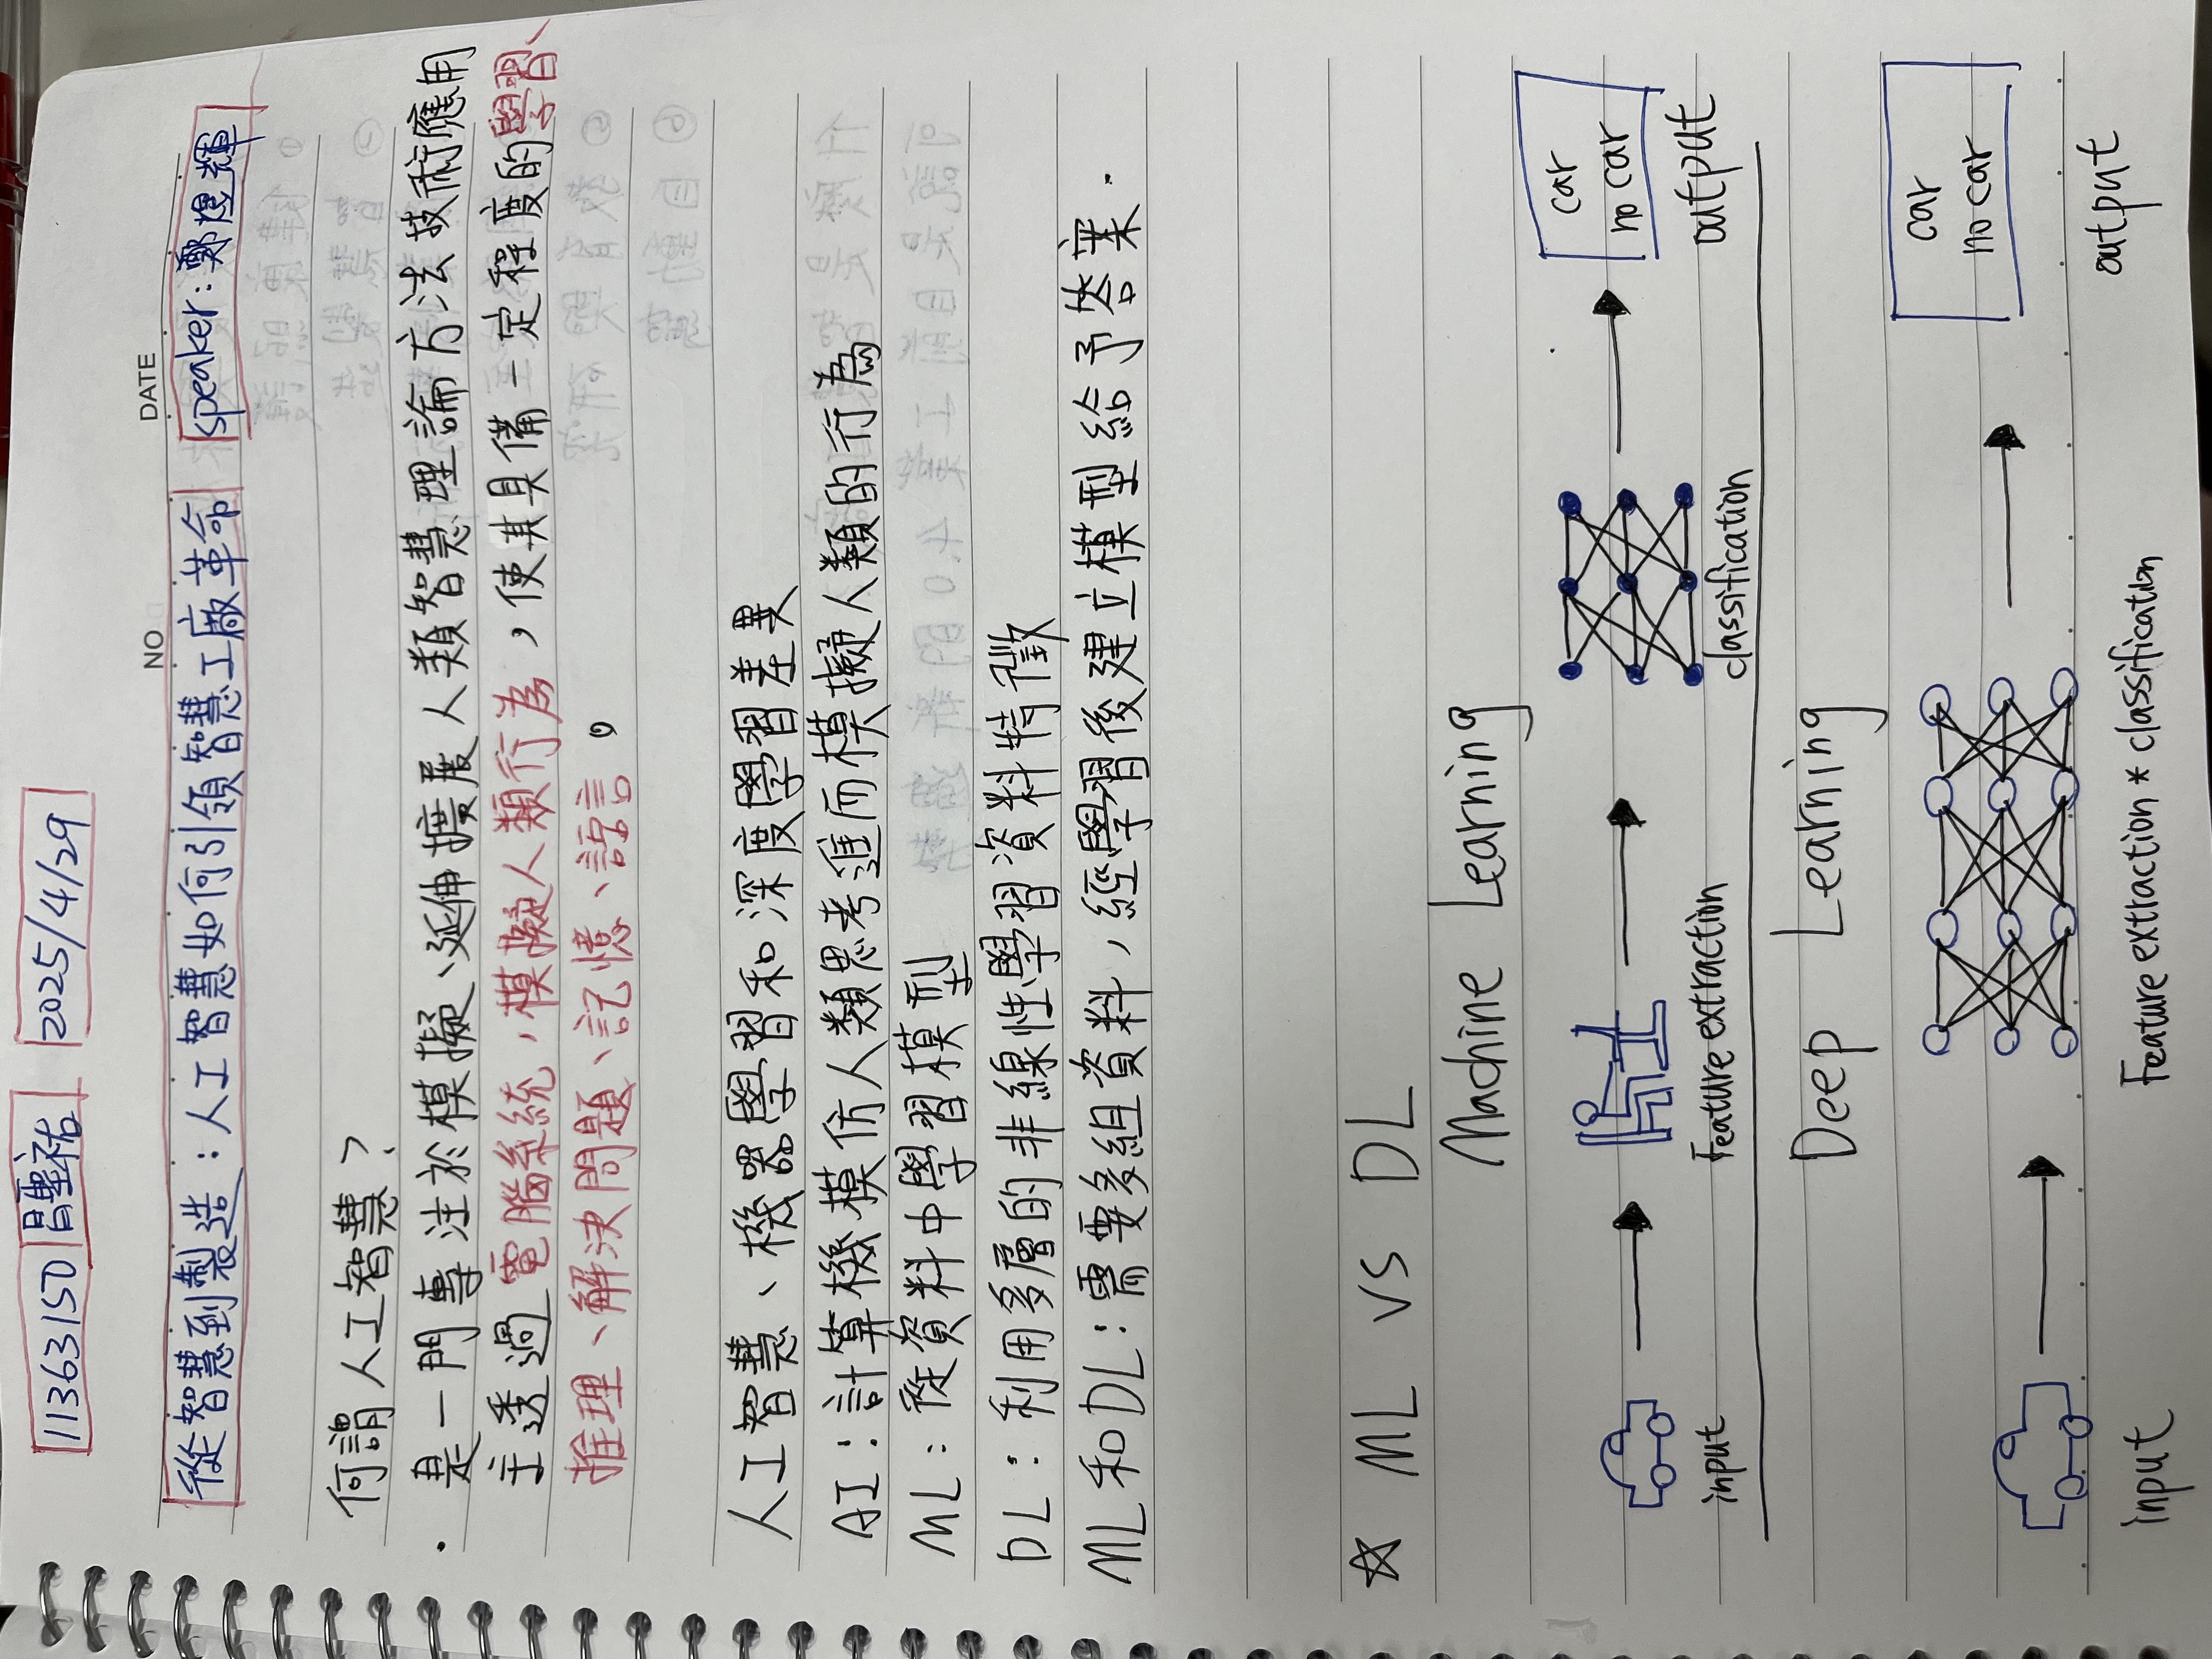 11363150 呂聖祐 2025/4/29
NO DATE
從智慧到製造:人工智慧如何引領智慧工廠革命 speaker:鄭煜輝
何謂人工智慧?
· 是一門專注於模擬、延伸擴展人類智慧理論方法技術應用
主透過電腦系統,模擬人類行為,使其具備一定程度的學習、
推理、解決問題、記憶、語言。
人工智慧、機器學習和深度學習差異
AI:計算機模仿人類思考進而模擬人類的行為
ML:從資料中學習模型
DL:利用多層的非線性學習資料特徵
ML和DL:需要多組資料,經學習後建立模型給予答案.
☆ ML VS DL
Machine Learning
car
no car
input Feature extraction classification output
Deep Learning
car
no car
input Feature extraction * classification output